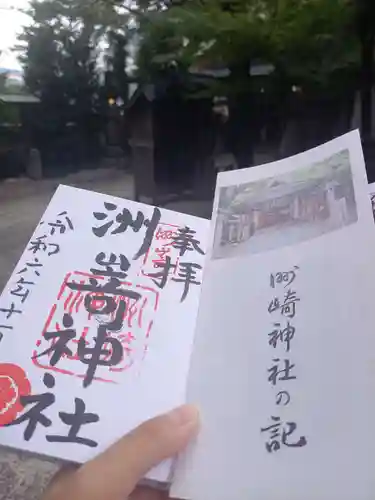 奉拝
洲崎神社
令和六年十一
洲崎神社の記